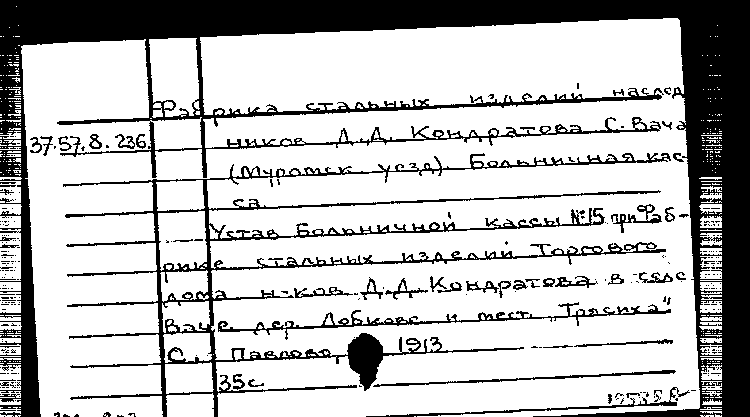 Фабрика стальных изделий наслед
37.57.8.236. ников Д.Д. Кондратова С. Вача
(Муромск уезд). Больничная кас-
са.
Устав Больничной кассы №15 при Фаб-
рике стальных изделий Торгового
дома н-ков Д.Д. Кондратова в селе
Ваче дер. Лобкове и мест. „Трясиха"
С., Павлово, 1913
35с